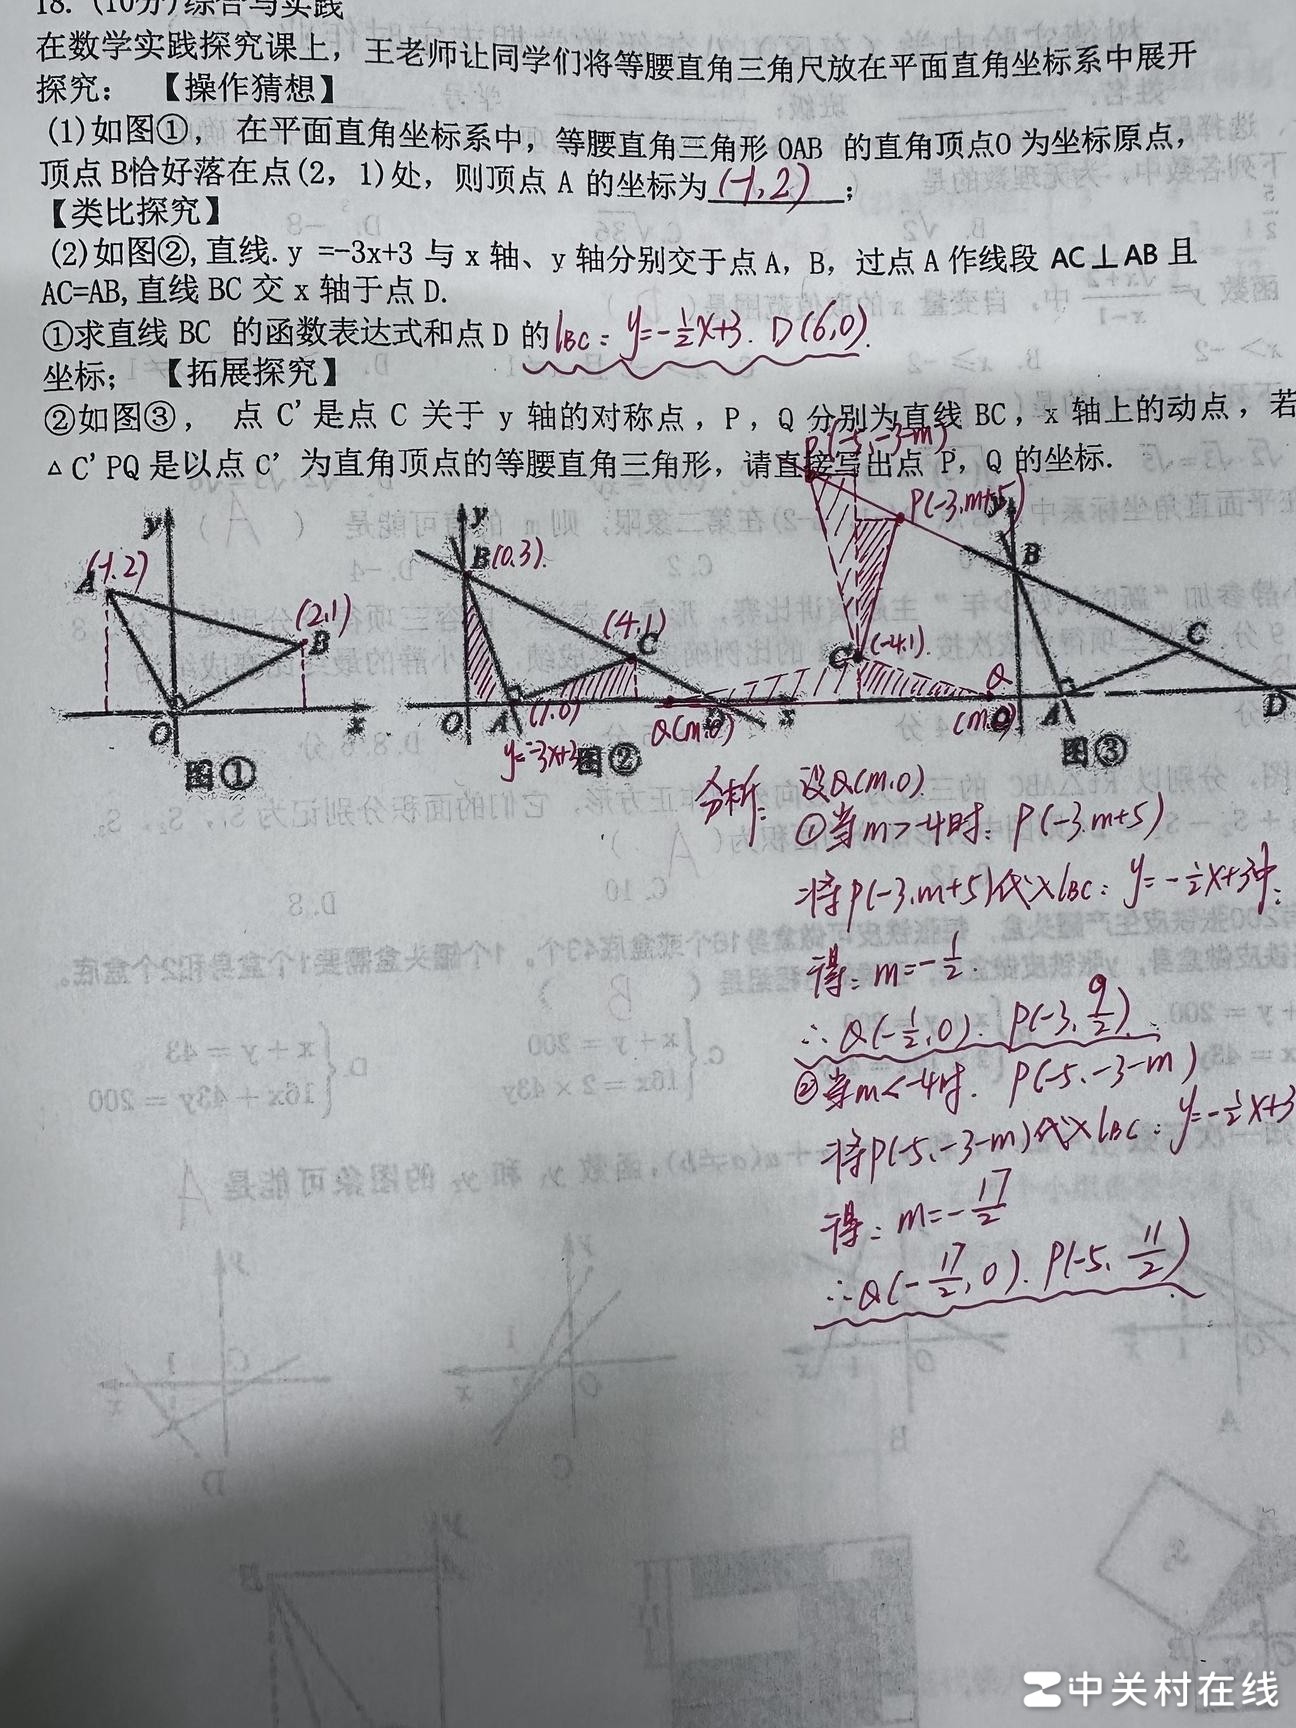 18. (10分)综合与实践
在数学实践探究课上，王老师让同学们将等腰直角三角尺放在平面直角坐标系中展开
探究： 【操作猜想】
(1)如图①， 在平面直角坐标系中，等腰直角三角形 OAB 的直角顶点O 为坐标原点，
顶点 B恰好落在点(2，1)处，则顶点 A 的坐标为(-1,2)；
【类比探究】
(2)如图②,直线.y =-3x+3 与 x 轴、y 轴分别交于点 A，B，过点 A 作线段 AC⊥AB 且
AC=AB,直线 BC 交 x 轴于点 D.
①求直线 BC 的函数表达式和点 D 的 lBC：y=-1/2x+3. D(6,0).
坐标； 【拓展探究】
②如图③， 点 C'是点 C 关于 y 轴的对称点，P，Q 分别为直线 BC，x 轴上的动点，若
△C'PQ 是以点 C' 为直角顶点的等腰直角三角形，请直接写出点 P，Q 的坐标.
P(-5,-3-m)
P(-3,m+5)
y
A
(-1,2)
(2,1)
B
O
x
图①
y
B(0,3).
(4,1)
C
O
A
(1,0)
D
x
y=-3x+3
图②
y
B
C
C'
(-4,1).
Q
(m,0)
Q(m,0)
A
D
图③
分析： 设Q(m,0)
①当m>-4时：P(-3,m+5)
将P(-3,m+5)代入lBC：y=-1/2x+3中：
得：m=-1/2.
∴Q(-1/2,0). P(-3,9/2).
②当m<-4时. P(-5,-3-m)
将P(-5,-3-m)代入lBC：y=-1/2x+3
得：m=-17/2
∴Q(-17/2,0). P(-5,11/2)
中关村在线